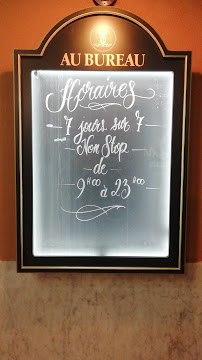 AU BUREAU
Horaires
7 jours sur 7
Non Stop
de
9H00 à 23H00